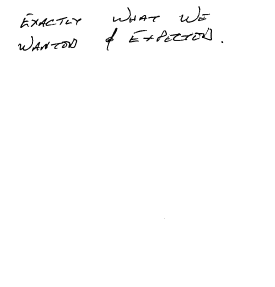 EXACTLY WHAT WE
WANTED & EXPECTED.